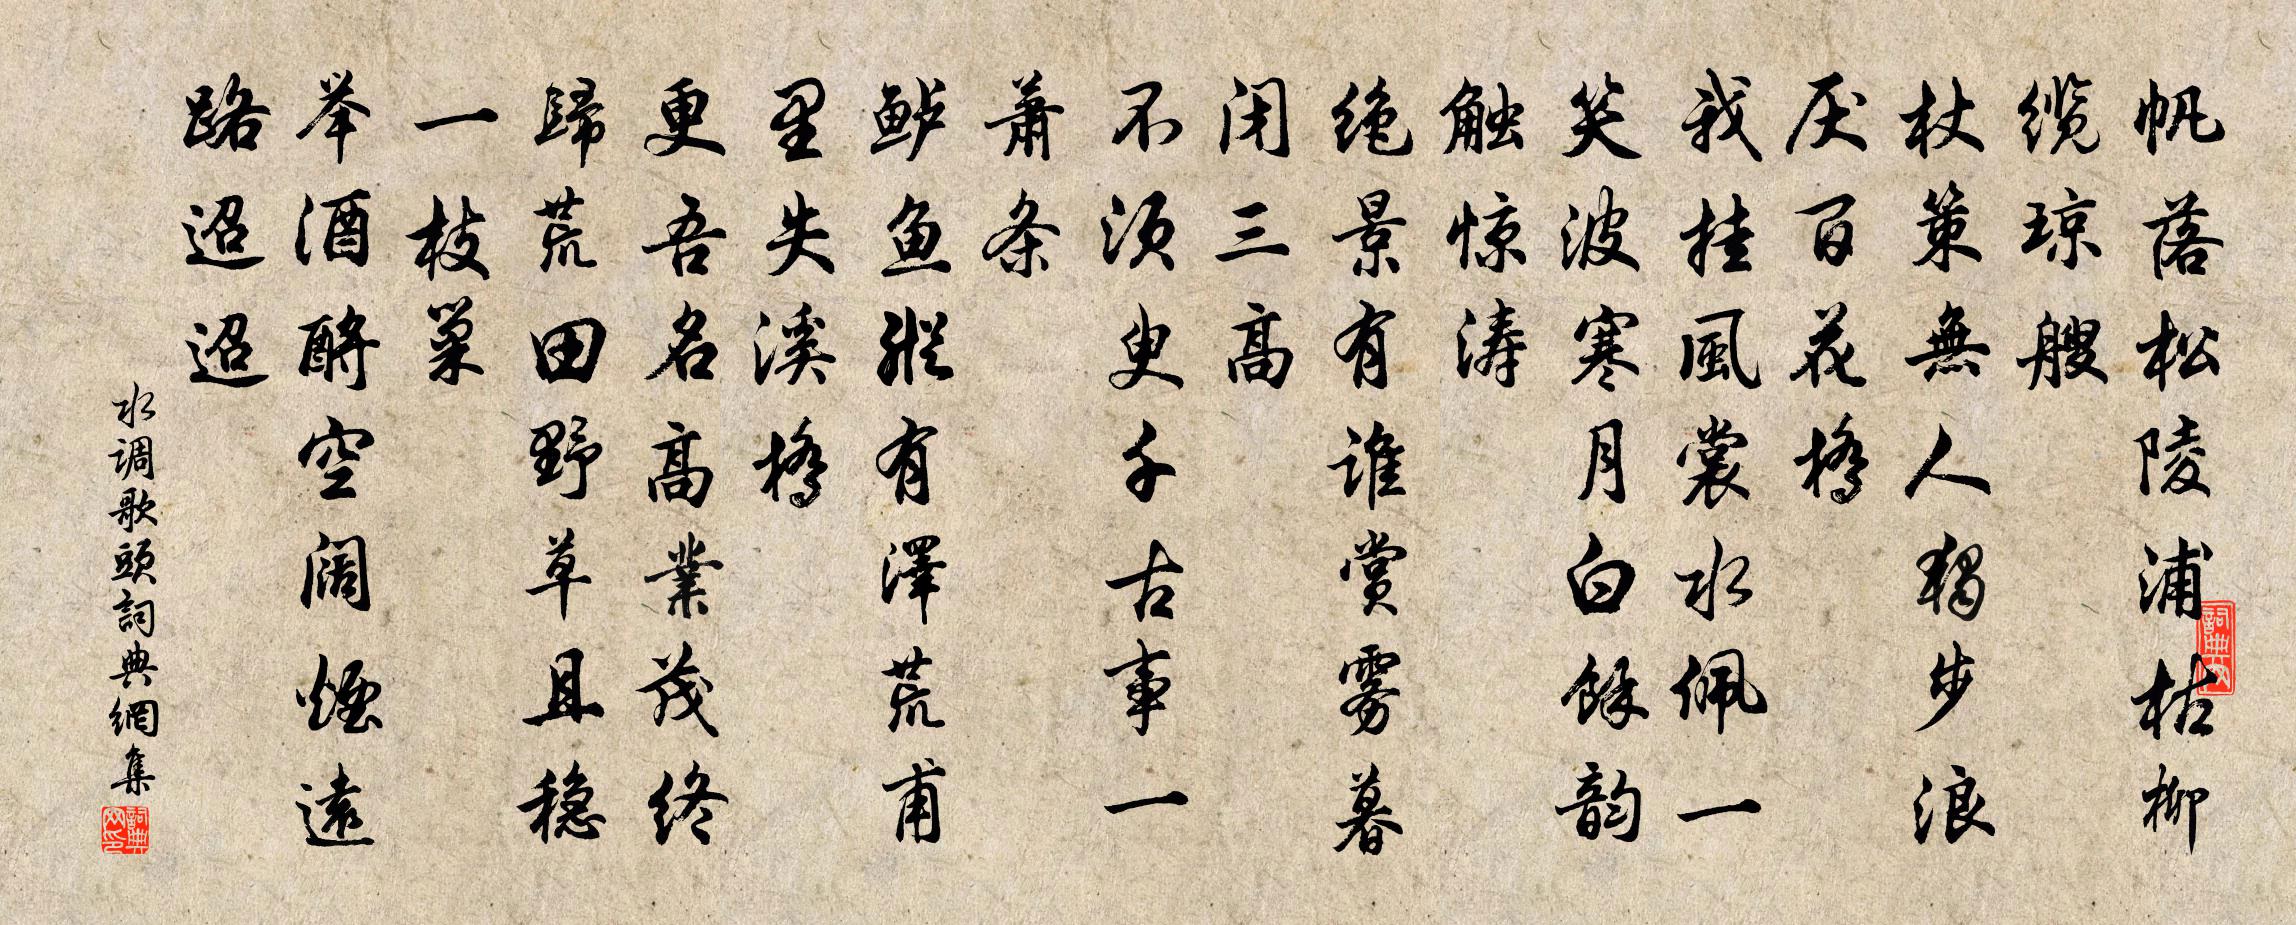 帆落松陵浦枯柳
缆琼艘
杖策無人獨步浪
厌百花橋
我挂風裳水佩一
笑波寒月白餘韵
触惊涛
绝景有谁赏雾暮
闭三高
不须叟千古事一
萧条
鲈鱼纵有澤荒甫
里失溪橋
更吾名高業茂终
歸荒田野草且稳
一枝巢
举酒酹空阔煙遠
路迢迢
水调歌頭詞典網集
詞典网
詞典网印